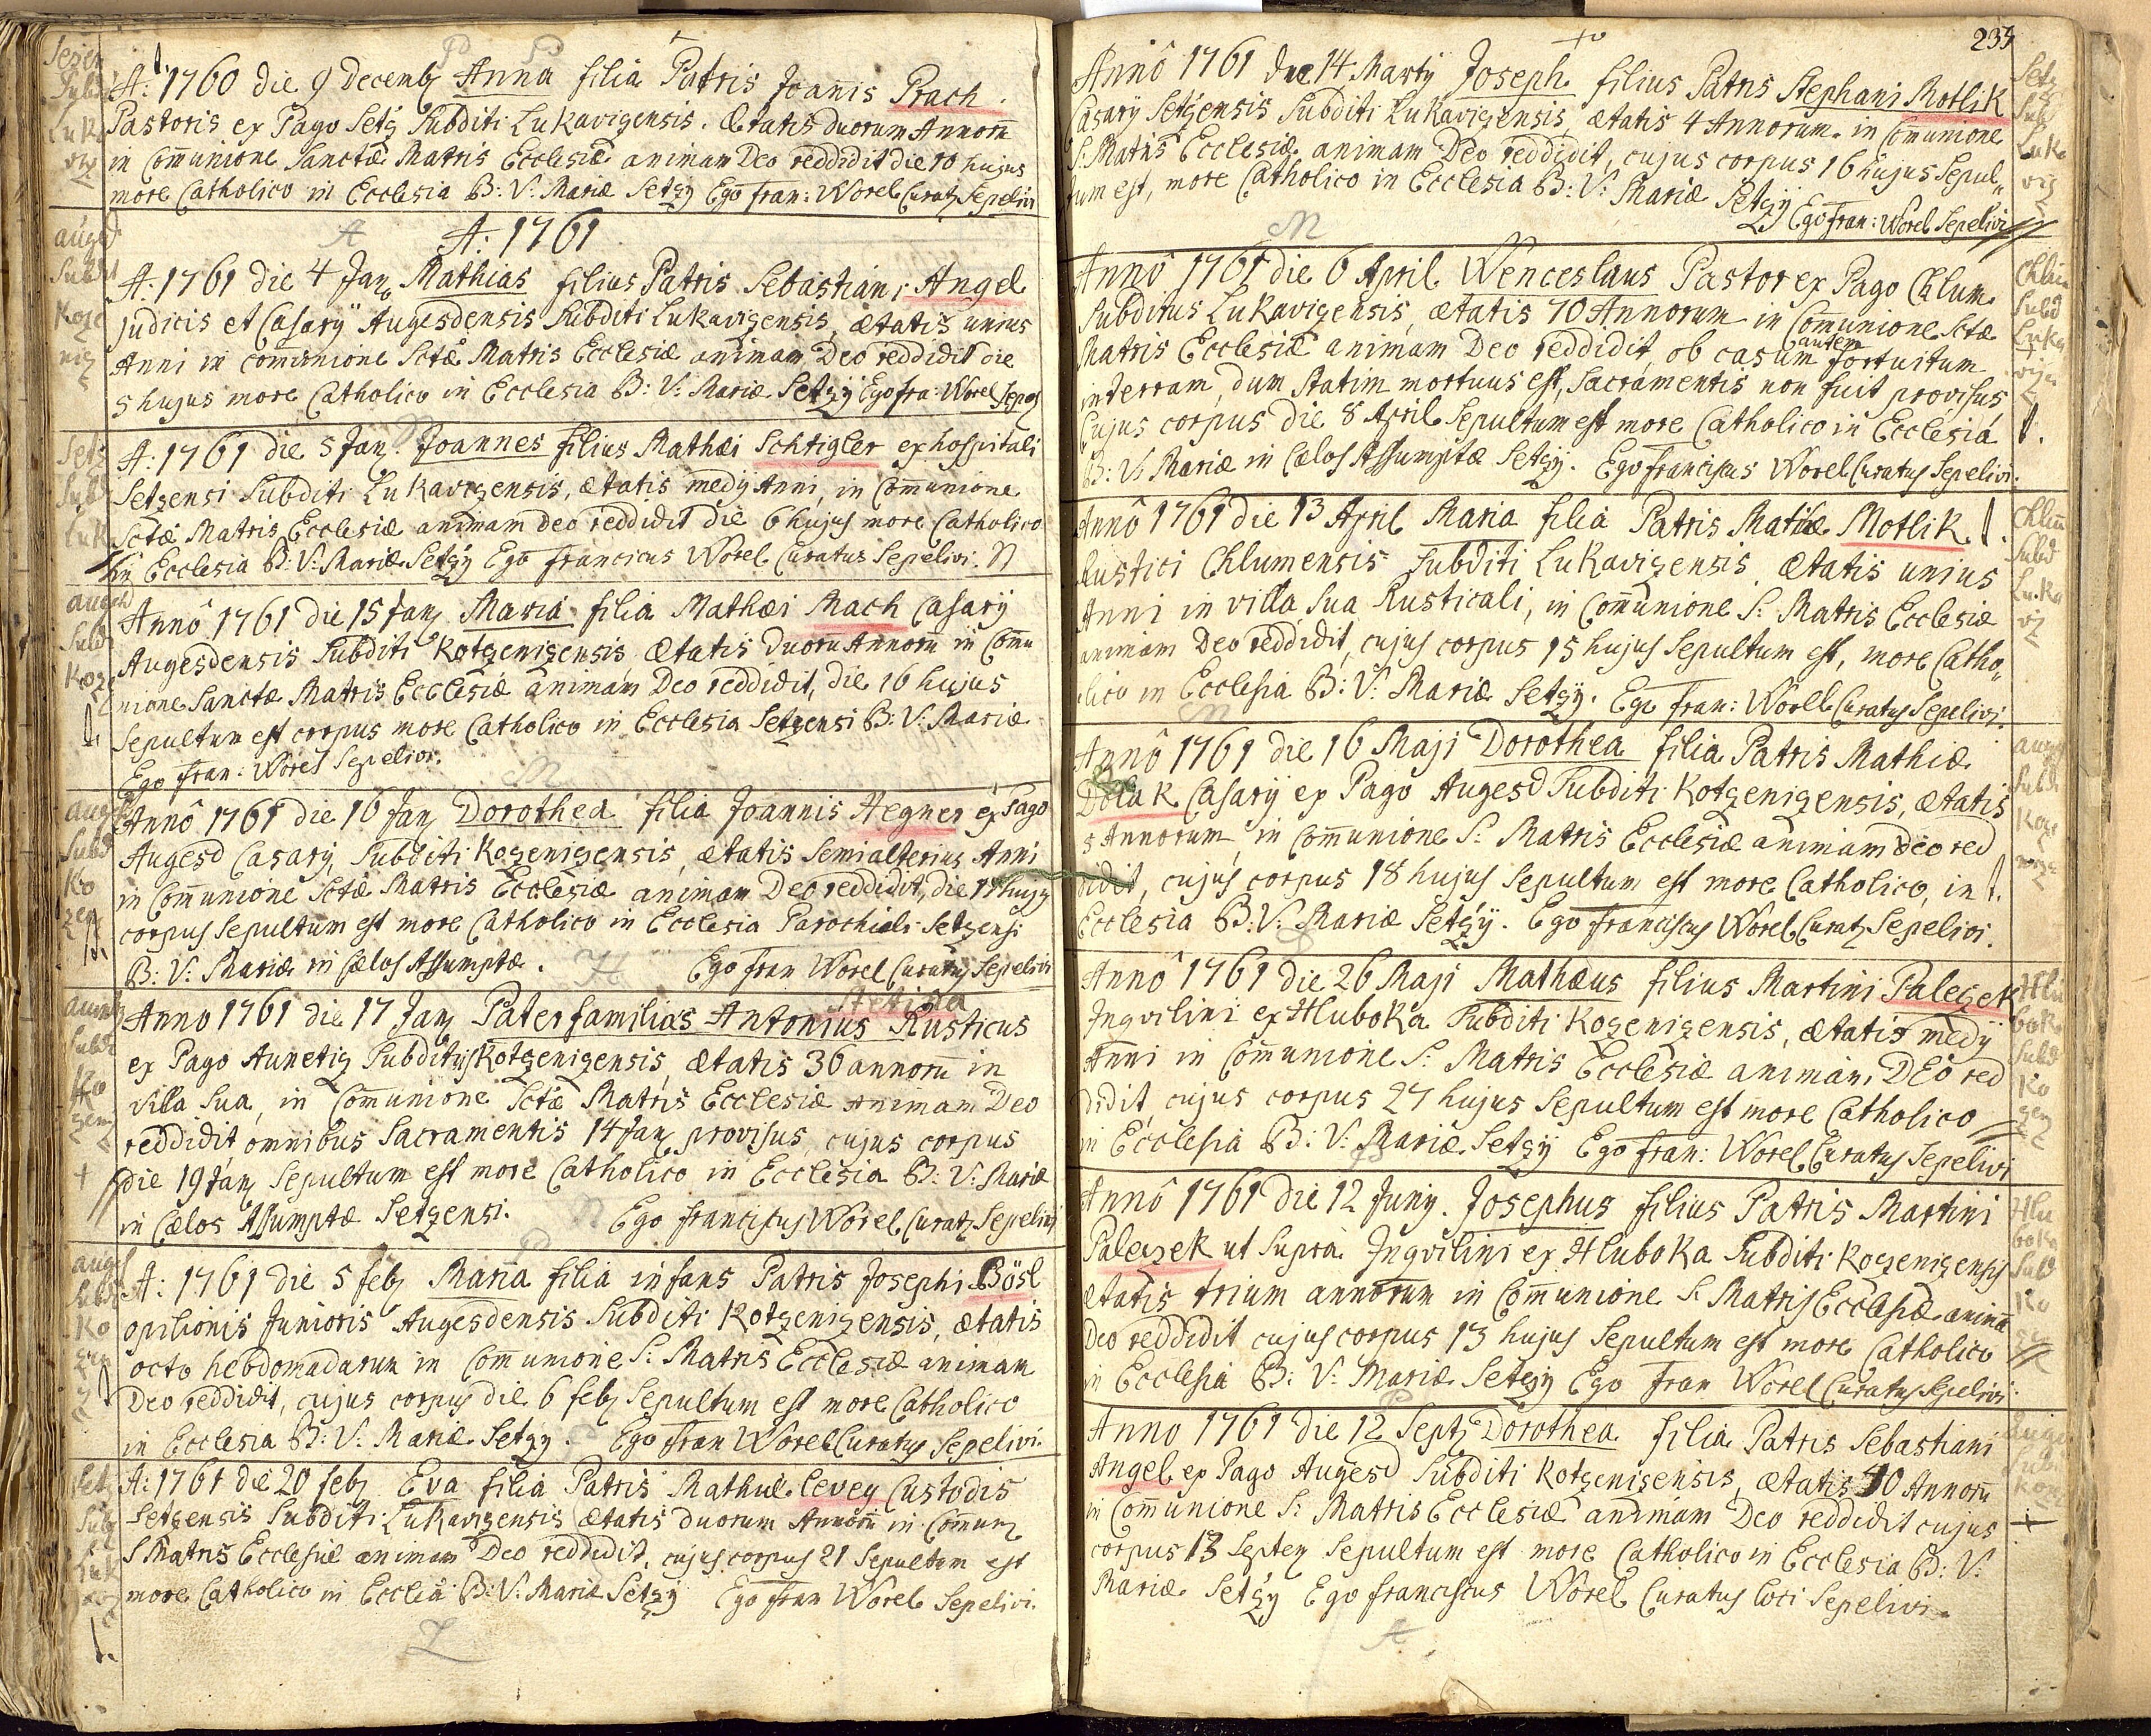 A: 1760 die 9 Decemb Anna filia Patris Joannis Prach.
Pastoris ex Pago Setz Subditi Lukavizensis. Ætatis duorum Annorū
in Com̄unione Sanctæ Matris Ecclesiæ animam Deo reddidit die 10 hujus
more Catholico in Ecclesia B: V: Mariæ Setzy Ego Fran: Worel Curatq Sepelivi
A: 1761
A: 1761 die 4 Jan Mathias filius Patris Sebastiani Angel
Judicis et Casarÿ Augesdensis Subditi Lukavizensis, ætatis unius
Anni in com̄unione Sctæ Matris Ecclesiæ animam Deo reddidit die
5 hujus more Catholico in Ecclesia B: V: Mariæ Setzÿ Ego Fra: Worel
A: 1761 die 5 Jan. Joannes filius Mathæi Schtigler ex hospitali
Setzensi Subditi Lukavizensis, ætatis medy Anni, in Com̄unione
Sctæ Matris Ecclesiæ animam Deo reddidit die 6 hujus more Catholico
in Ecclesia B: V: Mariæ Setzy Ego Franciscus Worel Curatus Sepelivi.
Annô 1761 die 15 Jan Maria filia Mathæi Mach Casarÿ
Augesdensis Subditi Kotzenizensis Ætatis Duorū Annorū in Com̄u
nione Sanctæ Matris Ecclesiæ animam Deo reddidit, die 16 hujus
Sepultum est corpus more Catholico in Ecclesia Setzensi B: V: Mariæ
Ego Fran: Worel Sepelivi.
Annô 1761 die 16 Jan Dorothea filia Joannis Hegner ex Pago
Augesd Casary Subditi Kozenizensis, ætatis Semialterius Anni
in Com̄unione Sctæ Matris Ecclesiæ animam Deo reddidit, die hujq
corpus Sepultum est more Catholico in Ecclesia Parochiali Setzensi
B: V: Mariæ in Cælos Assumptæ. Ego Fran Worel Curatus Sepelivi
Anno 1761 die 17 Jan Paterfamilias Antonius Rusticus
ex Pago Aunetiz Subditus Kotzenizensis, ætatis 36 annorū in
villa Sua, in Com̄unione Sctæ Matris Ecclesiæ animam Deo
reddidit, omnibus Sacramentis 14 Jan provisus, cujus corpus
die 19 Jan Sepultum est more Catholico in Ecclesia B: V: Mariæ
in Cælos Assumptæ Setzensi. Ego Franciscus Worel Curatq Sepelivi
A: 1761 die 5 Feb Maria filia infans Patris Josephi Bösl
opilionis Junioris Augesdensis Subditi Kotzenizensis, ætatis
octo hebdomadarum in Com̄unione S: Matris Ecclesiæ animam
Deo reddidit, cujus corpus die 6 Feb Sepultum est more Catholico
in Ecclesia B: V: Mariæ Setzy. Ego Fran Worel Curatus Sepelivi.
A: 1761 die 20 Feb Eva filia Patris Mathiæ Levey Custodis
Setzensis Subditi Lukavizensis ætatis duorum Annorū in Com̄un
S Matris Ecclesiæ animam Deo reddidit, cujus corpus 21 Sepultum est
more Catholico in Ecclēia B: V: Mariæ Setzy Ego Fran Worel Sepelivi.
235
Annô 1761 die 14 Marty Joseph filius Patris Stephani Motlik
Casarÿ Setzensis Subditi Lukavizensis, ætatis 4 Annorum in Com̄unione
S: Matris Ecclesiæ animam Deo reddidit, cujus corpus 16 hujus Sepul„
tum est, more Catholico in Ecclesia B: V: Mariæ Setzÿ
Ego Fran: Worel Sepelivi
Annô 1761 die 6 April Wenceslaus Pastor ex Pago Chlum
Subditus Lukavizensis, ætatis 70 Annorum in Com̄unione Sctæ
Matris Ecclesiæ animam Deo reddidit, ob casum autem fortuitum
in terram, dum statim mortuus est, Sacramentis non fuit provisus
Cujus corpus die 8 April Sepultum est more Catholico in Ecclesia
B: V: Mariæ in Cælos Assumptæ Setzÿ. Ego Franciscus Worel Curatus Sepelivi.
Annô 1761 die 13 April Maria filia Patris Mathiæ Motlik
Rustici Chlumensis Subditi Lukavizensis, Ætatis unius
Anni in villa Sua Rusticali, in Com̄unione S: Matris Ecclesiæ
animam Deo reddidit, cujus corpus 15 hujus Sepultum est, more Catho„
lico in Ecclesia B: V: Mariæ Setzÿ. Ego Fran: Worel Curatus Sepelivi.
Annô 1761 die 16 Maji Dorothea filia Patris Mathiæ
Dolak Casarÿ ex Pago Augesd Subditi Kotzenizensis, ætatis
5 Annorum, in Com̄unione S: Matris Ecclesiæ animam Deo red
didit, cujus corpus 18 hujus Sepultum est more Catholico, in
Ecclesia B: V: Mariæ Setzÿ. Ego Franciscus Worel Curatq Sepelivi.
Annô 1761 die 26 Maji Mathæus filius Martini Palezek
Inqvilini ex Hluboka Subditi Kozenizensis, ætatis medÿ
Anni in Com̄unione S: Matris Ecclesiæ animam DEo red
didit, cujus corpus 27 hujus Sepultum est more Catholico
in Ecclesia B: V: Mariæ Setzÿ Ego Fran: Worel Curatus Sepelivi
Annô 1761 die 12 Juny. Josephus filius Patris Martini
Palezek ut supra Inqvilini ex Hluboka Subditi Kozenizensis
ætatis trium annorum in Com̄unione S: Matris Ecclesiæ animā
Deo reddidit cujus corpus 13 hujus Sepultum est more Catholico
in Ecclesia B: V: Mariæ Setzÿ Ego Fran Worel Curatus Sepelivi
Anno 1761 die 12 Sept Dorothea filia Patris Sebastiani
Angel ex Pago Augesd Subditi Kotzenizensis, ætatis 10 Annorū
in Com̄unione S: Matris Ecclesiæ animam Deo reddidit cujus
corpus 13 Septem Sepultum est more Catholico in Ecclesia B: V:
Mariæ Setzÿ Ego Franciscus Worel Curatus Loci Sepelivi